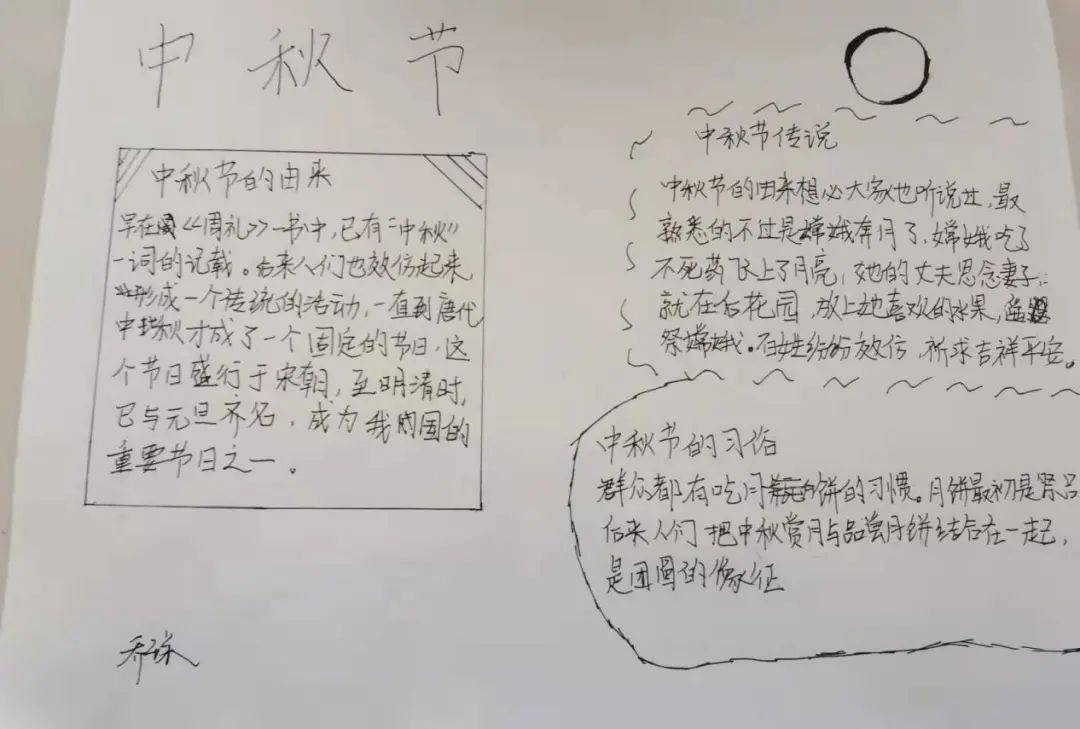 中秋节
中秋节的由来
早在《周礼》一书中,已有“中秋”
一词的记载。后来人们也效仿起来
形成一个传统的活动,一直到唐代
中秋才成了一个固定的节日,这
个节日盛行于宋朝,至明清时,
已与元旦齐名,成为我国的
重要节日之一。
中秋节传说
中秋节的由来想必大家也听说过,最
熟悉的不过是嫦娥奔月了,嫦娥吃了
不死药飞上了月亮,她的丈夫思念妻子,
就在后花园,放上她喜欢的水果,遥
祭嫦娥。百姓纷纷效仿,祈求吉祥平安。
中秋节的习俗
群众都有吃月饼的习惯。月饼最初是祭品
后来人们把中秋赏月与品尝月饼结合在一起,
是团圆的像征